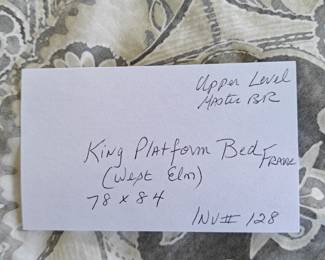 Upper Level
Master BR
King Platform Bed Frame
(West Elm)
78 x 84
INV# 128